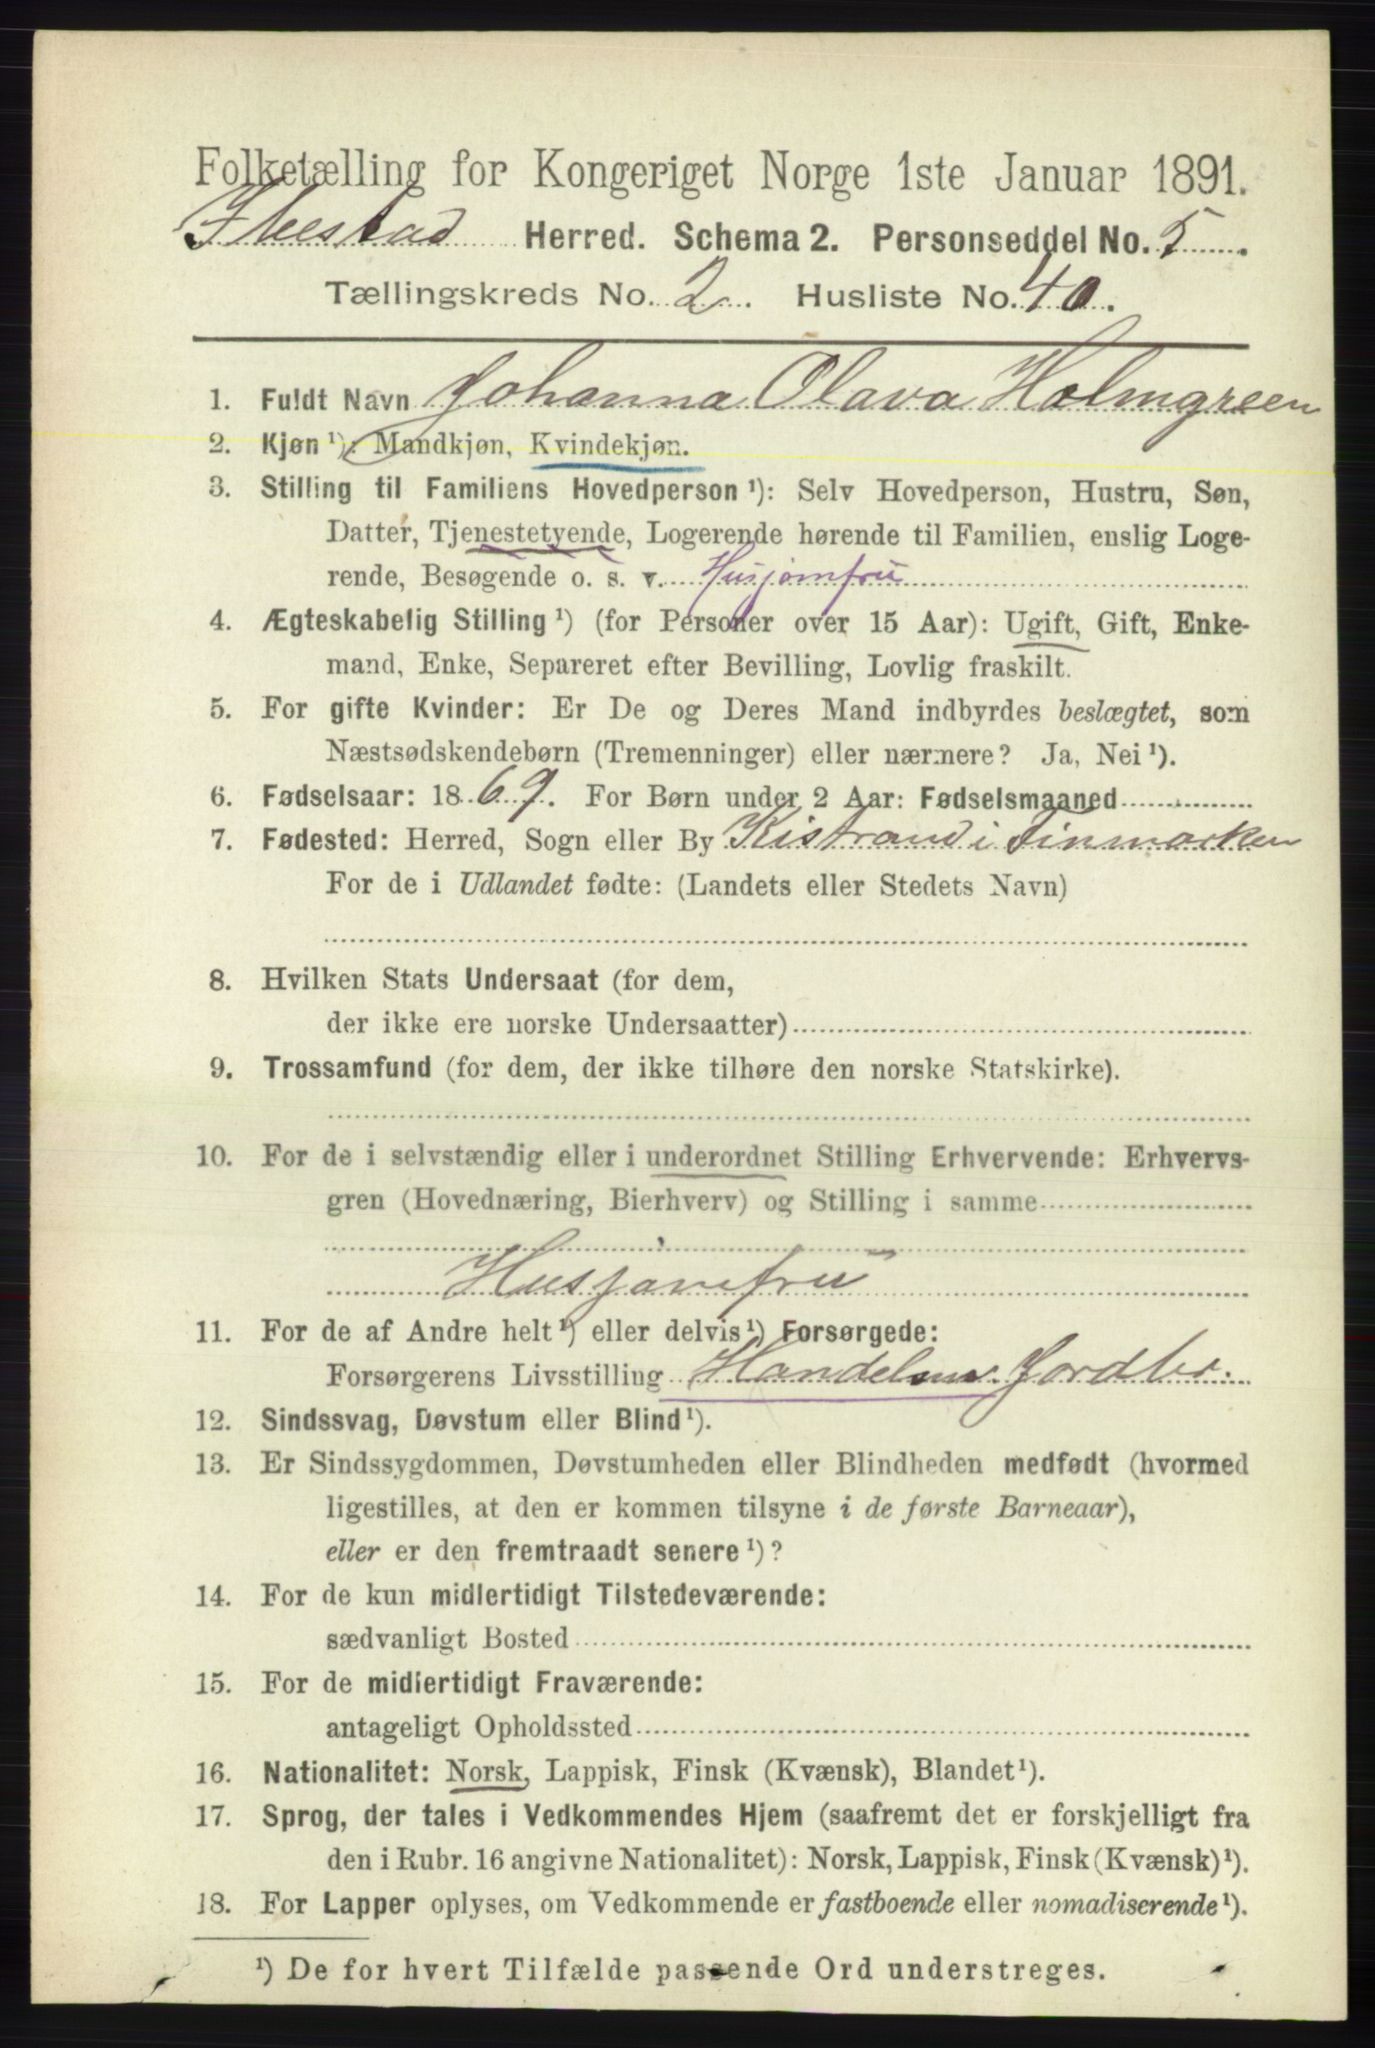 Folketælling for Kongeriget Norge 1ste Januar 1891.
Ibestad Herred. Schema 2. Personseddel No. 5.
Tællingskreds No. 2. Husliste No. 40.
1. Fuldt Navn Johanna Olava Holmgreen
2. Kjøn ¹): Mandkjøn, Kvindekjøn.
3. Stilling til Familiens Hovedperson ¹): Selv Hovedperson, Hustru, Søn,
Datter, Tjenestetyende, Logerende hørende til Familien, enslig Loge-
rende, Besøgende o. s. v. Husjomfru
4. Ægteskabelig Stilling ¹) (for Personer over 15 Aar): Ugift, Gift, Enke-
mand, Enke, Separeret efter Bevilling, Lovlig fraskilt.
5. For gifte Kvinder: Er De og Deres Mand indbyrdes beslægtet, som
Næstsødskendebørn (Tremenninger) eller nærmere? Ja, Nei ¹).
6. Fødselsaar: 1869. For Børn under 2 Aar: Fødselsmaaned
7. Fødested: Herred, Sogn eller By Kistrand i Finmarken
For de i Udlandet fødte: (Landets eller Stedets Navn)
8. Hvilken Stats Undersaat (for dem,
der ikke ere norske Undersaatter)
9. Trossamfund (for dem, der ikke tilhøre den norske Statskirke).
10. For de i selvstændig eller i underordnet Stilling Erhvervende: Erhvervs-
gren (Hovednæring, Bierhverv) og Stilling i samme
Husjomfru
11. For de af Andre helt ¹) eller delvis ¹) Forsørgede:
Forsørgerens Livsstilling Handelsm. Jordbr.
12. Sindssvag, Døvstum eller Blind ¹).
13. Er Sindssygdommen, Døvstumheden eller Blindheden medfødt (hvormed
ligestilles, at den er kommen tilsyne i de første Barneaar),
eller er den fremtraadt senere ¹)?
14. For de kun midlertidigt Tilstedeværende:
sædvanligt Bosted
15. For de midlertidigt Fraværende:
antageligt Opholdssted
16. Nationalitet: Norsk, Lappisk, Finsk (Kvænsk), Blandet ¹).
17. Sprog, der tales i Vedkommendes Hjem (saafremt det er forskjelligt fra
den i Rubr. 16 angivne Nationalitet): Norsk, Lappisk, Finsk (Kvænsk) ¹).
18. For Lapper oplyses, om Vedkommende er fastboende eller nomadiserende ¹).
¹) De for hvert Tilfælde passende Ord understreges.